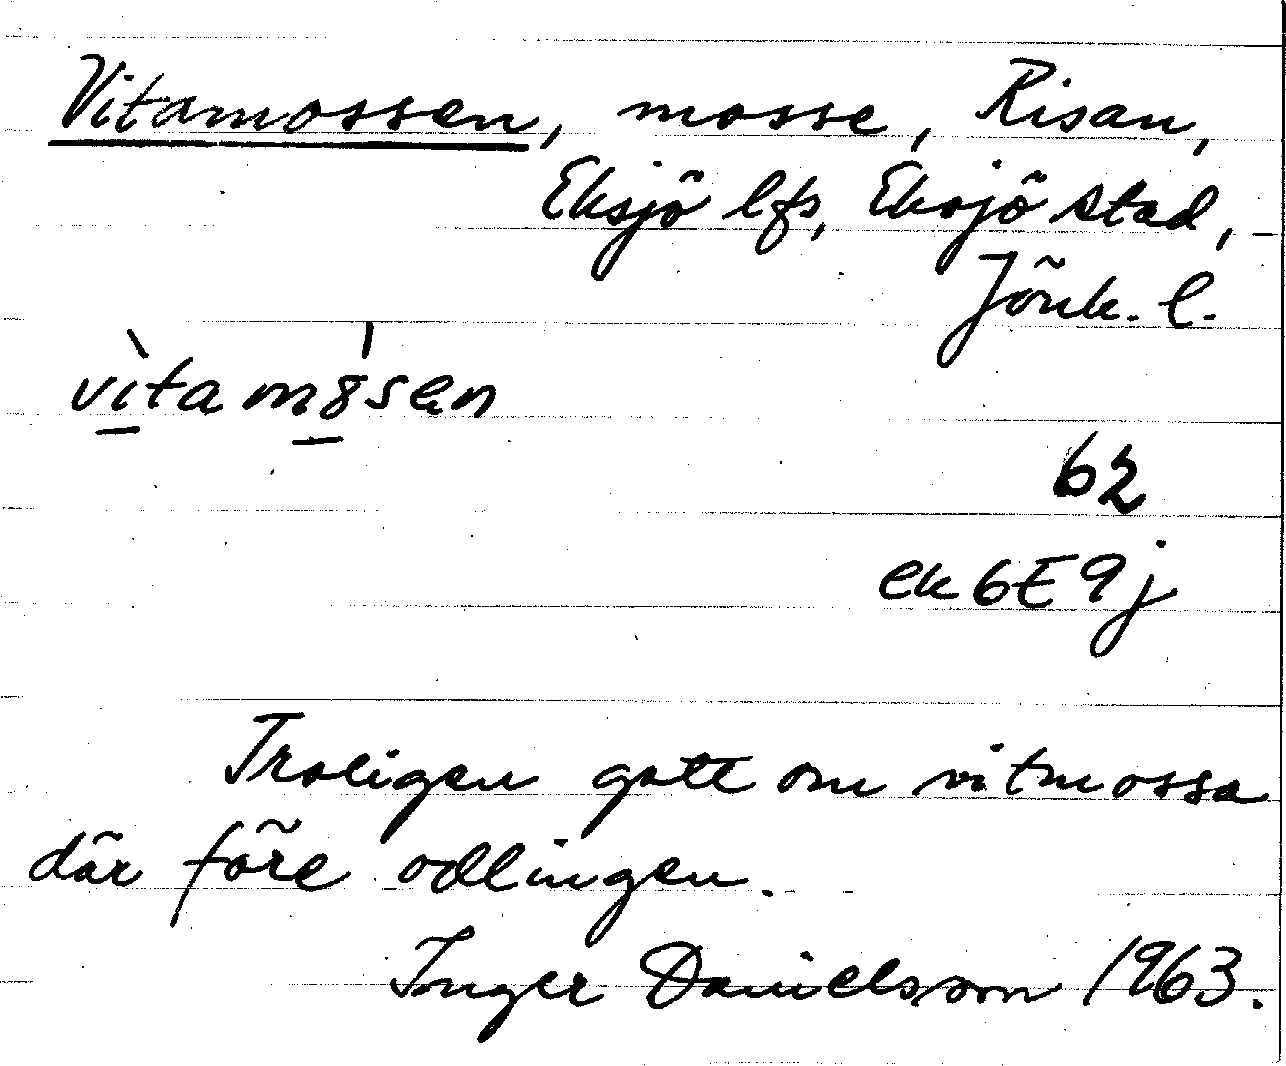 Vitamossen, mosse, Risan,
Eksjö lfs, Eksjö stad,
Jönk. l.
vìtamȣ́sen
62
ek 6E 9j
Troligen gott om vitmossa
där före odlingen.
Inger Danielsson 1963.